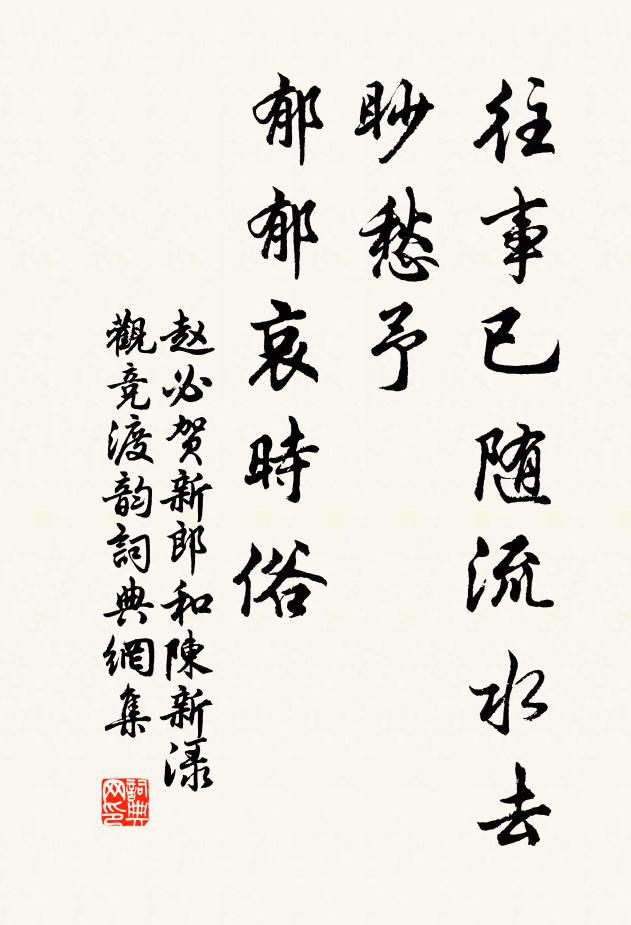 往事已随流水去
眇愁予
郁郁哀時俗
赵必贺新郎和陳新渌
觀竞渡韵詞典網集
詞典
网印